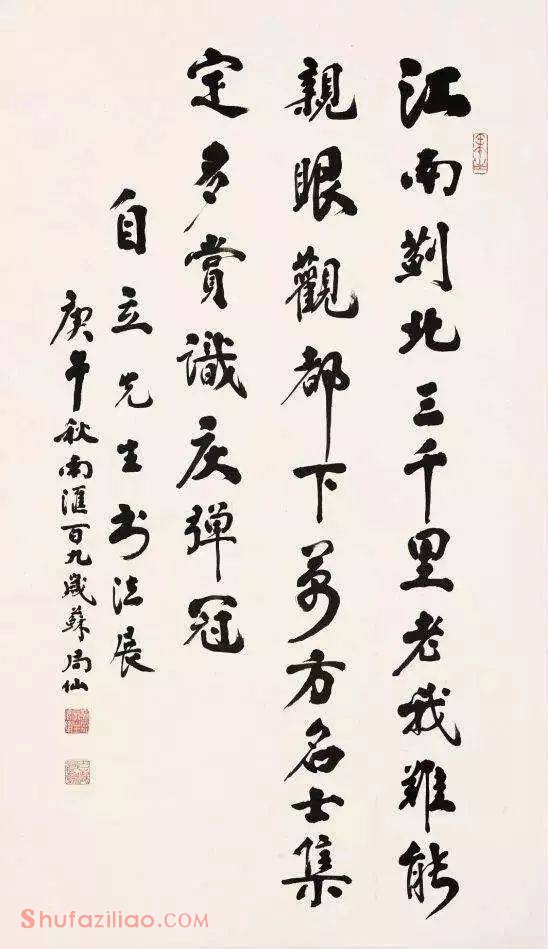 江南薊北三千里老我難能
親眼觀都下万方名士集
定多賞識庆彈冠
自立先生书法展
庚午秋南滙百九歲蘇局仙
Shufaziliao.COM